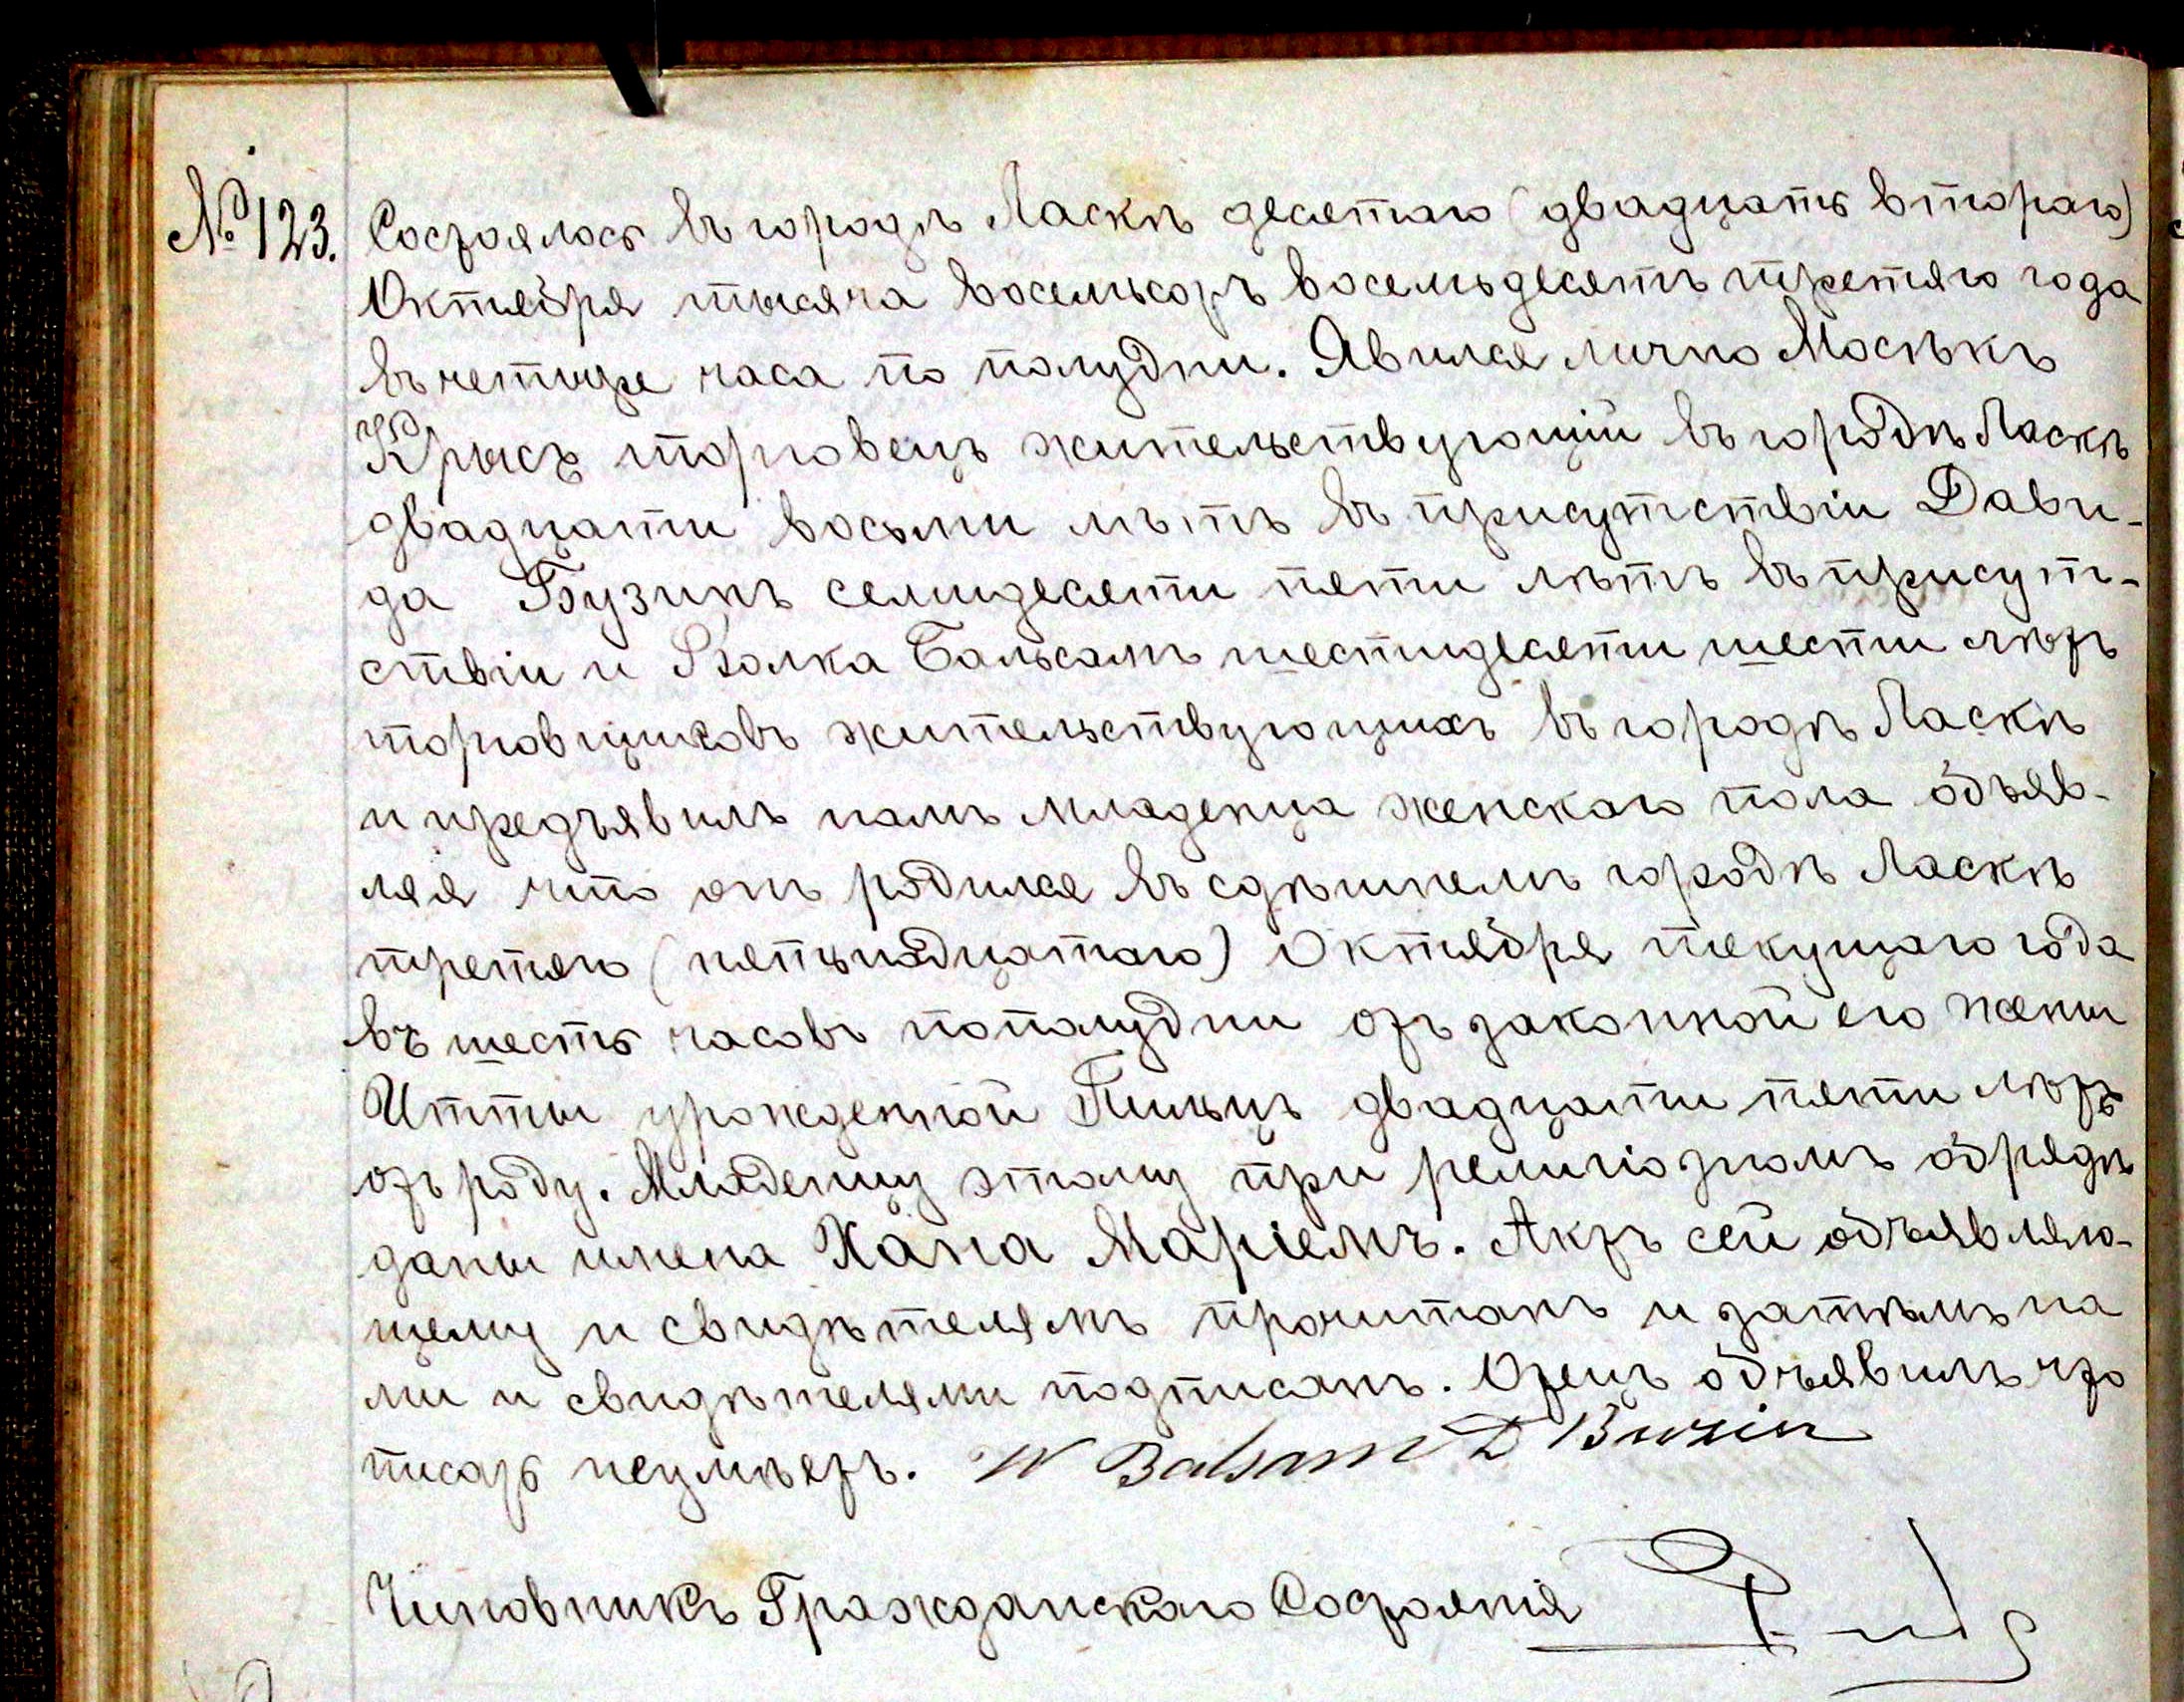 № 123. Состоялось въ городѣ Ласкѣ десятаго (двадцать втораго)
Октября тысяча восемьсотъ восемьдесятъ третяго года
въ четыре часа по полудни. Явился лично Мосѣкъ
Крысъ торговецъ жительствующій въ городѣ Ласкѣ
двадцати восьми лѣтъ въ присутствіи Дави-
да Бузинъ семидесяти пяти лѣтъ въ присут-
ствіи и Волка Бальсамъ шестидесяти шести лѣтъ
торговщиковъ жительствующихъ въ городѣ Ласкѣ
и предъявилъ намъ младенца женскаго пола объяв-
ляя что онъ родился въ сдѣшнемъ городѣ Ласкѣ
третяго (пятьнадцатаго) Октября текущаго года
въ шесть часовъ пополудни отъ законной его жены
Итты урожденной Пильцъ двадцати пяти лѣтъ
отъ роду. Младенцу этому при религіозномъ обрядѣ
даны имена Хана Маріемъ. Актъ сей объявляю-
щему и свидѣтелямъ прочитанъ и затѣмъ на
ми и свидѣтелями подписанъ. Отецъ объявилъ что
писать неумѣетъ. W Balsam D Buzin
Чиновникъ Гражданскаго Состоянія